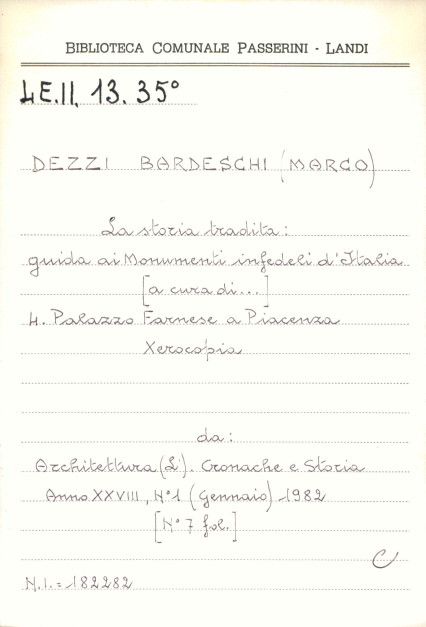 BIBLIOTECA COMUNALE PASSERINI - LANDI
4E.II. 13. 35°
DEZZI BARDESCHI (MARCO)
La storia tradita:
guida ai Monumenti infedeli d'Italia
[a cura di...]
4. Palazzo Farnese a Piacenza
Xerocopia
da:
Architettura (L'). Cronache e Storia
Anno XXVIII, N°1 (Gennaio) 1982
[N° 7 fol.]
C
N.I. = 182282